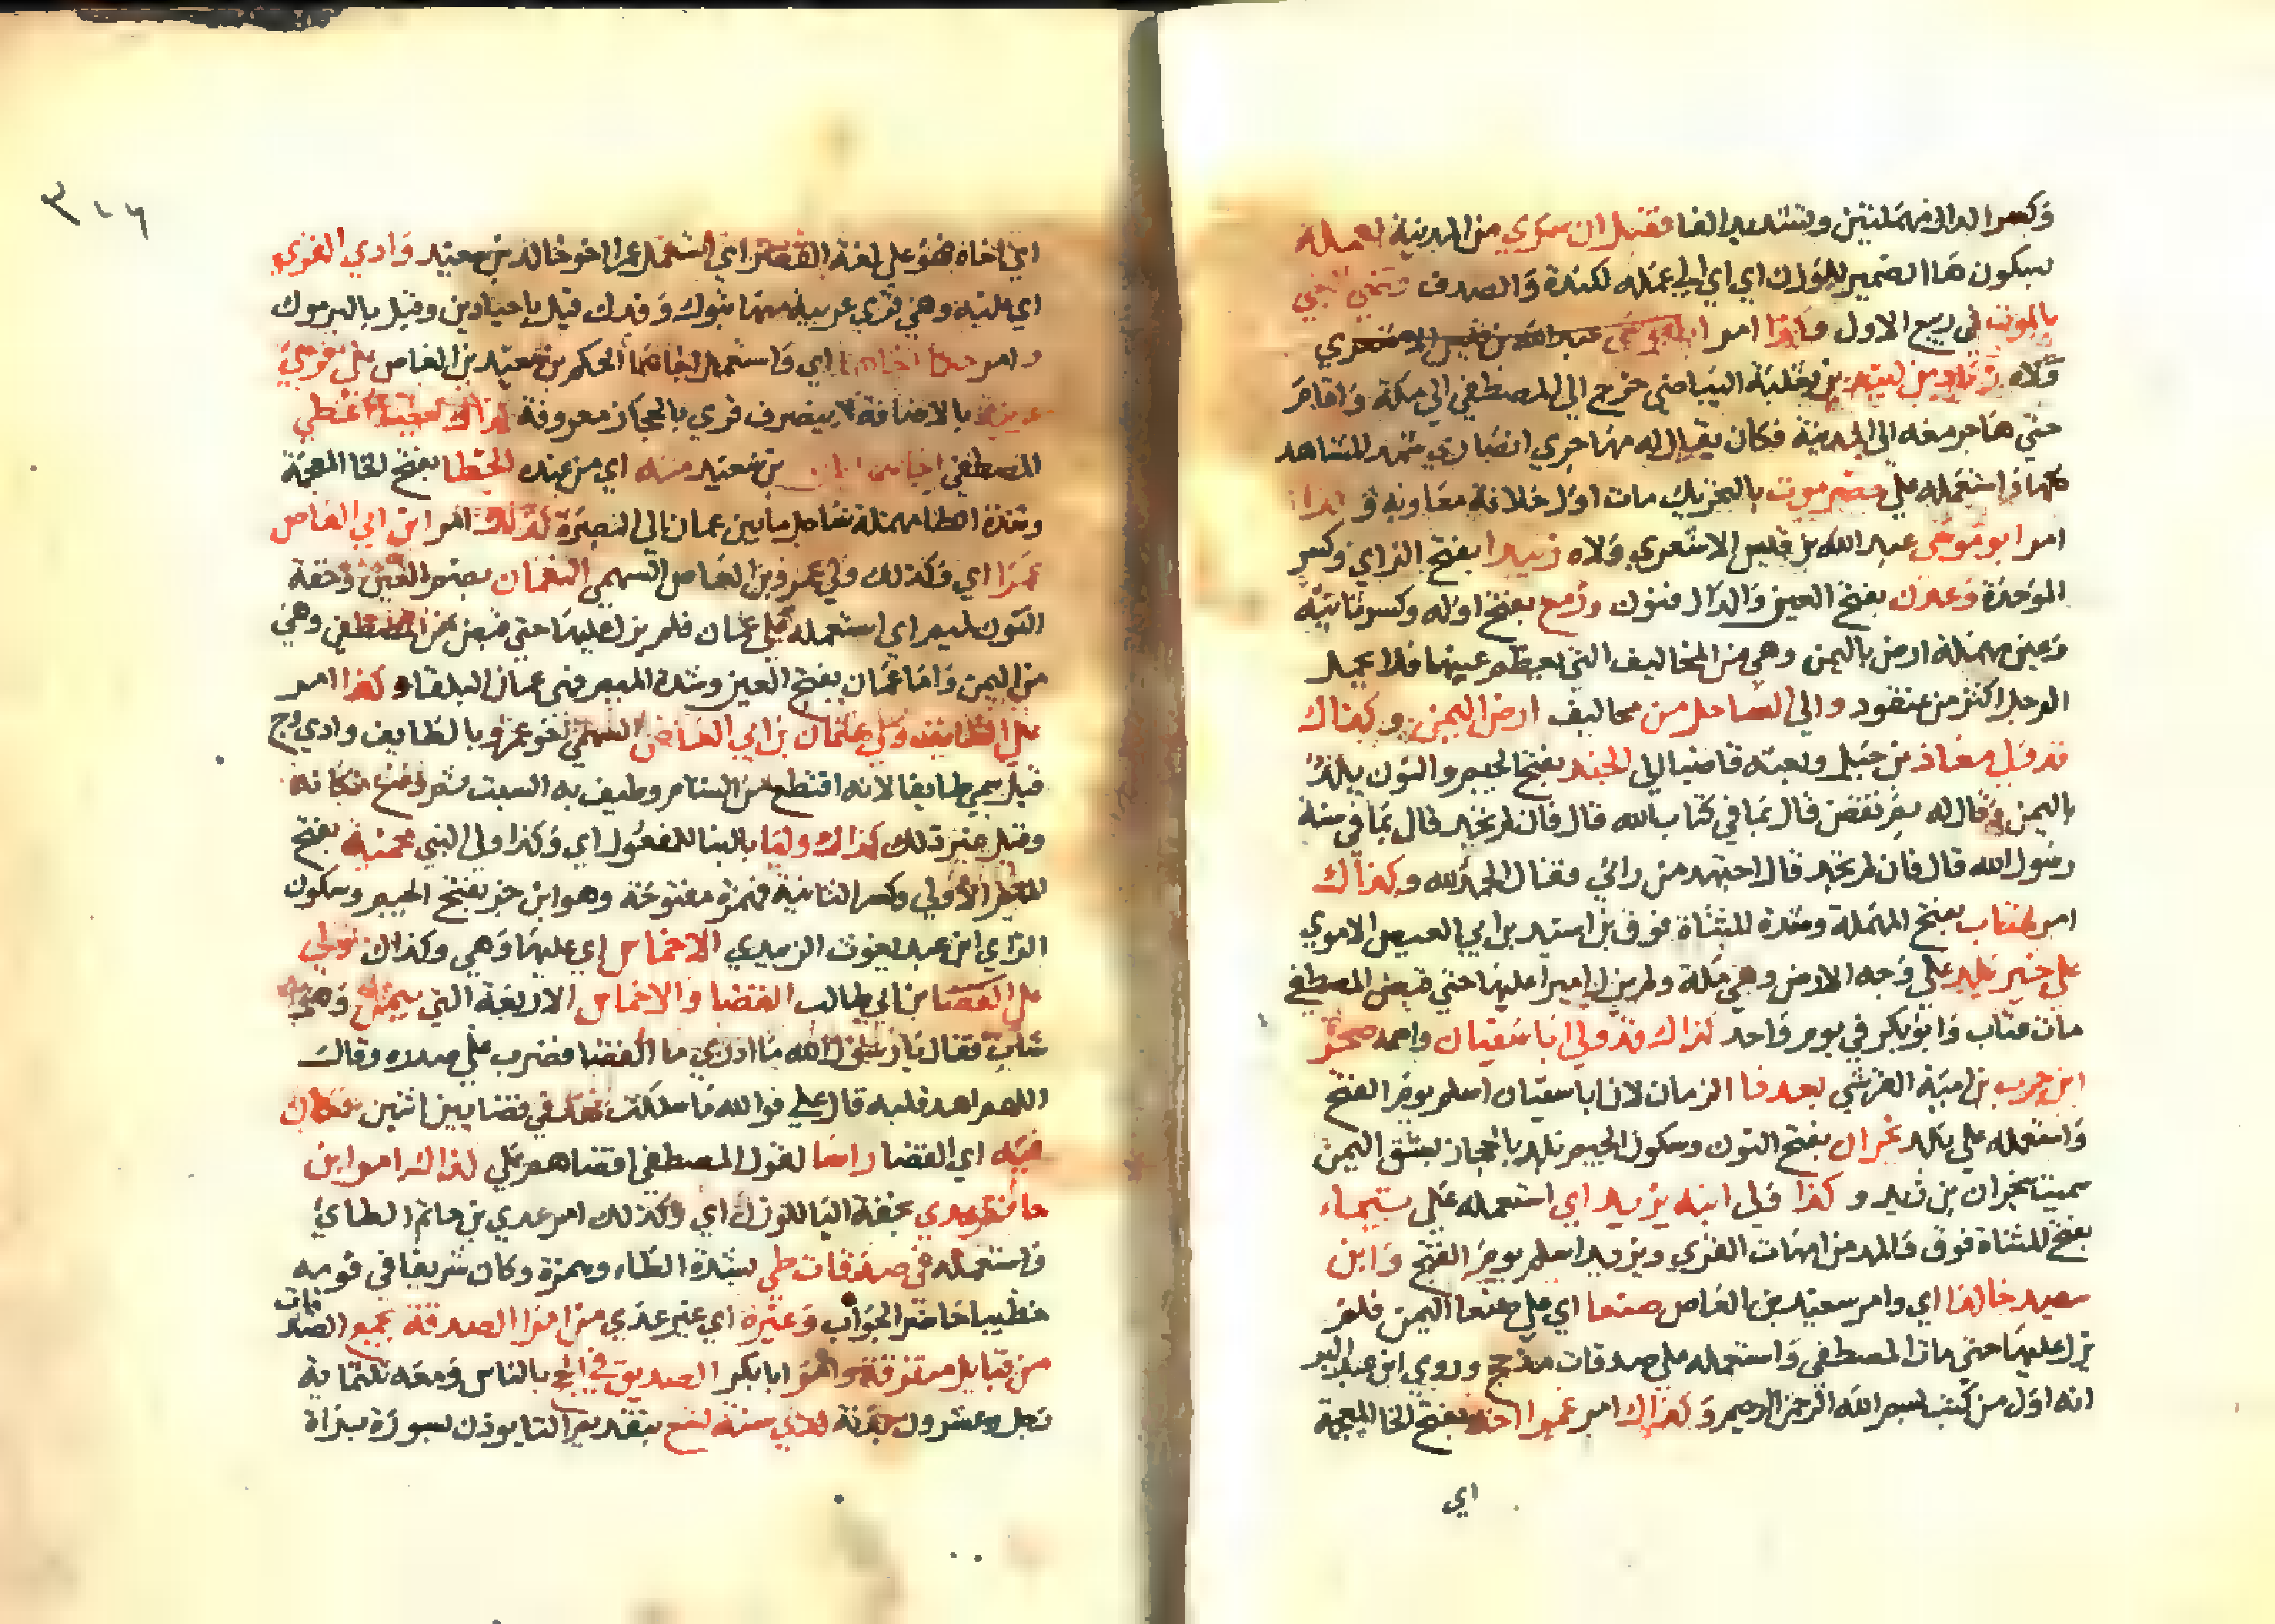 وكسر الدال مهملتين وتشديد الفا فقبل ان سري من المدينة لعمله
بسكون ها الضمير للوزن اي اي الي عمله لكندة والصدف
بالموت في ربيع الاول وكذا امر ابو موسى عبد الله بن قيس الاشعري
ولاه زياد بن لبيد بن ثعلبة البياضي خرج الي المصطفي الي مكة واقام
حتي هاجر معه الي المدينة فكان يقال له مهاجري انصاري شهد المشاهد
كلها واستعمله علي حضرموت بالتحريك مات اول خلافة معاوية و كذا
امر ابو موسى عبد الله بن قيس الاشعري ولاه زبيدا بفتح الزاي وكسر
الموحدة وعدن بفتح العين والدال فنون ورمع بفتح اوله وكسر ثانيه
وعين مهملة ارض باليمن وهي من المخاليف التي يعظم عنبها فلا يحمل
الرجل اكثر من عنقود والي الساحل من مخاليف ارض اليمن و كذاك
قد ولي معاذ بن جبل وبعثه قاضيا الي الجند بفتح الجيم والنون بلد
باليمن وقال له بم تقض قال بما في كتاب الله قال فان لم تجد قال بما في سنة
رسول الله قال فان لم تجد قال اجتهد من رائي فقال الحمد لله و كذاك
امر عتاب بفتح المهملة وشدة المثناة فوق بن اسيد بن ابي العيص الاموي
علي خير بلد علي وجه الارض وهي مكة ولم يزل اميرا عليها حتي قبض المصطفي
مات عتاب وابو بكر في يوم واحد كذاك قد ولي ابا سفيان واسمه صخر
ابن حرب بن امية القرشي بعد فا الزمان لان ابا سفيان اسلم يوم الفتح
واستعمله علي بلد نجران بفتح النون وسكون الجيم بلد بالحجاز بشق اليمن
سميت بنجران بن زيد و كذا ولي ابنه يزيد اي استعمله علي تيماء
بفتح المثناة فوق والمد من امهات القري ويزيد اسلم يوم الفتح وابن
سعيد خالدا اي وامر سعيد بن العاص صنعا اي علي صنعا اليمن فلم
يزل عليها حتي مات المصطفي واستعمله علي صدقات مذحج وروي ابن عبد البر
انه اول من كتب بسم الله الرحمن الرحيم وكذاك امر عمرا اخه بفتح الخا المعجمة
اي
٣٠٦
اي اخاه فهو علي لغة القصر اي استعمل عمرا اخو خالد بن سعيد وادي القري
اي عليه وهي قري عربية منها تبوك وفدك قيل باجنادين وقيل باليرموك
وامر حكما اخاهما اي واستعمل اخاهما الحكم بن سعيد بن العاص علي قري
عرينة بالاضافة لا ينصرف قري بالحجاز معروفة كذاك
المصطفي بن سعيد منه اي من عنده الخطا بفتح الخا المعجمة
وشدة الطا مهملة ساحل ما بين عمان الي البصرة كذلك امر ابن ابي العاص
عمرا اي وكذلك ولي عمرو بن العاص السهمي العمان بضم العين وخفة
النون لميم اي استعمله علي عمان فلم يزل عليها حتي قبض المصطفي وهي
من اليمن واما عمان بفتح العين وشدة الميم فهي عمان البلقا و كذا امر
علي الطايف وولي عثمان بن ابي العاص السهمي اخو عمرو بالطايف وادي وج
قيل سمي طايفا لانه اقتطع من الشام وطيف به البيت ثم وضع مكانه
وقيل غير ذلك كذاك وليا بالبنا للمفعول اي وكذا ولي النبي محمية بفتح
الميم الاولي وكسر الثانية فهمزة مفتوحة وهو ابن جز بفتح الجيم وسكون
الزاي ابن عبد يغوث الزبيدي الاخماس اي عليها وهي وكذاك تولي
علي القضا بن ابي طالب القضا والاخماس الاربعة التي بيمن وهو
شاب فقال يا رسول الله ما ادري ما القضا فضرب علي صدره وقال
اللهم اهد قلبه قال علي فوالله ما شككت بعد في قضا بين اثنين فكان
فيه اي القضا راسا لقول المصطفي اقضاهم علي كذاك امر ابن
حاتم عدي بخفة اليا للوزن اي وكذلك امر عدي بن حاتم الطائي
واستعمله في صدقات طي بشدة الطاء وهمزة وكان شريفا في قومه
خطيبا حاضر الجواب وغيره اي غير عدي من امرا الصدقة بجمع الصدقات
من قبايل متفرقة وامر ابا بكر الصديق في الحج بالناس ومعه ثلثماية
رجل وعشرون بدنة لدي سنة تسع بتقديم التا يوذن بسورة براة